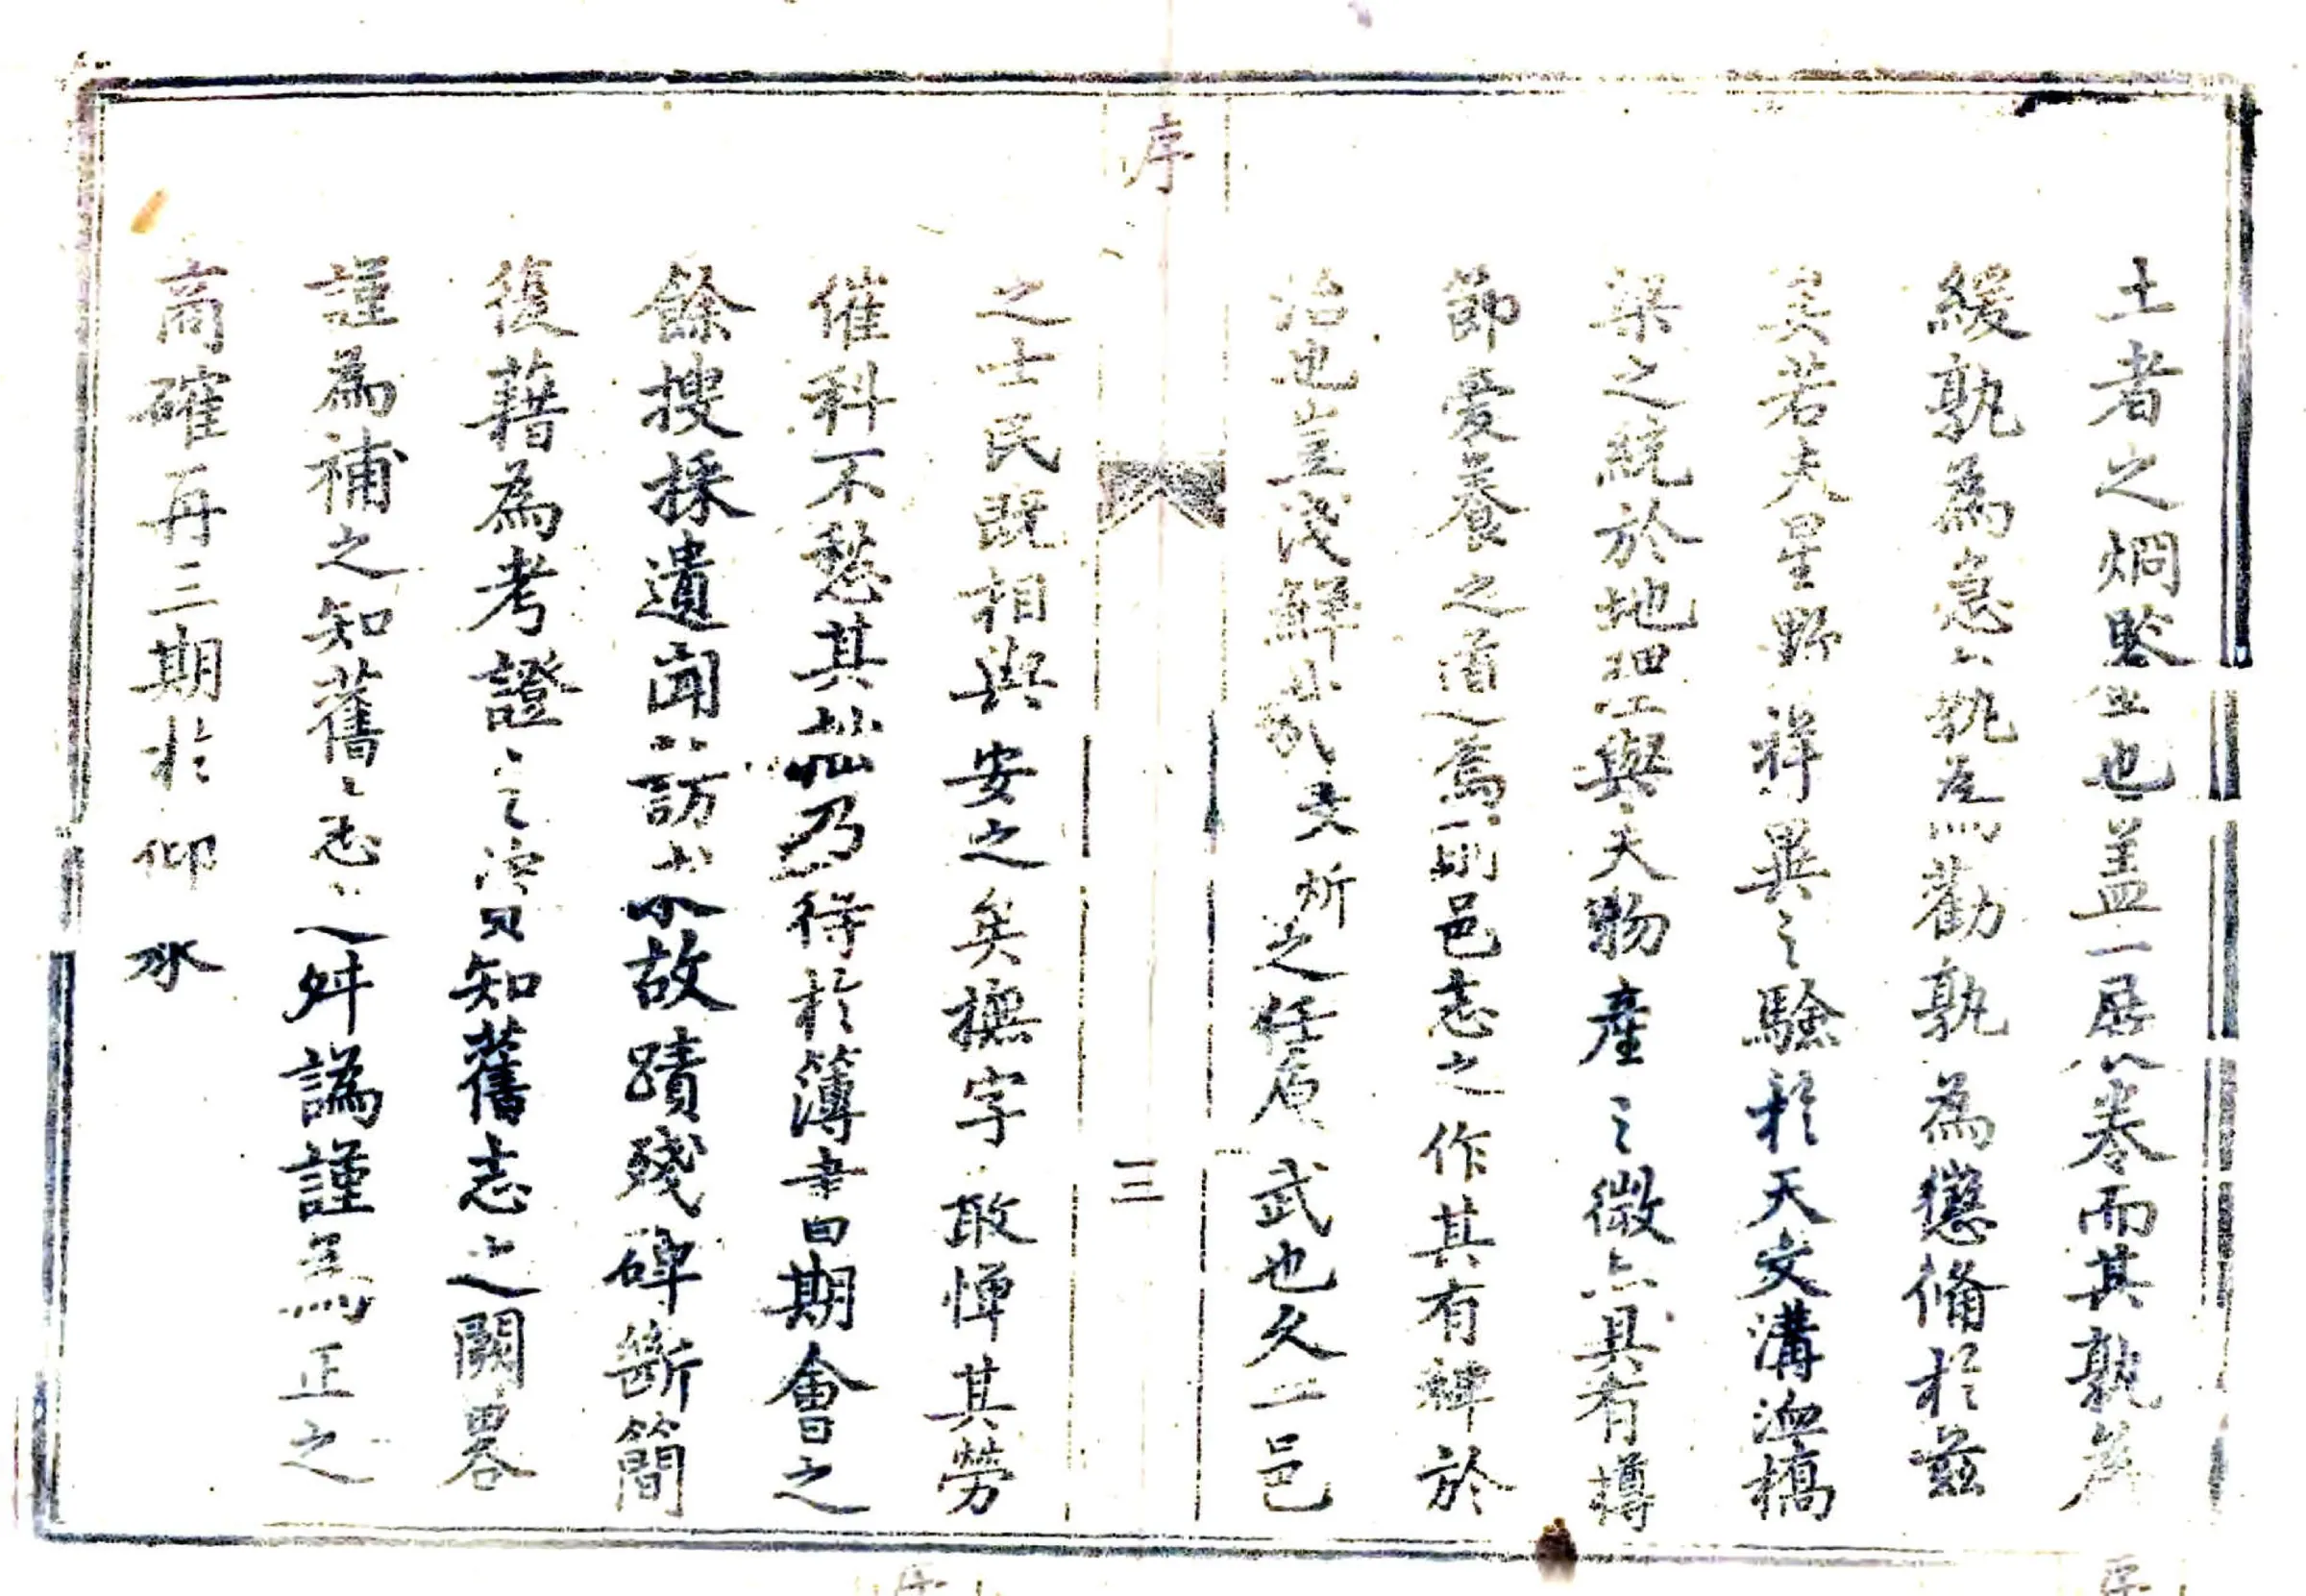 土者之烱鍳也盖一展卷而其孰為
緩孰為急孰為勸孰為懲備於兹
矣若夫星野祥異之驗於天文溝洫橋
梁之統於地理與夫物產之微亦具有撙
節愛養之道焉則邑志之作其有裨於
治也豈淺鮮哉所之任原武也久一邑
序
三
之士民既相與安之矣撫字敢憚其勞
催科不愁其拙乃得於簿書期會之
餘搜採遺聞訪求故蹟殘碑斷簡
復藉為考證之資知舊志之闕畧
謹為補之知舊志之舛譌謹為正之
商確再三期於仰承